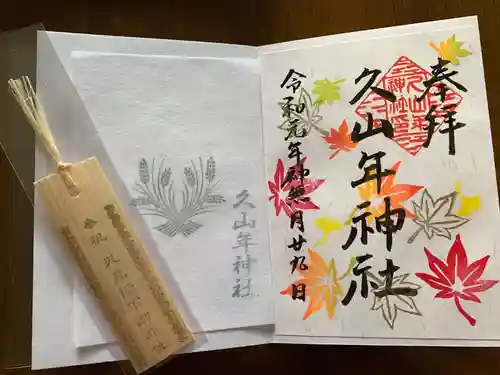 奉拝
久山年神社
令和元年神無月廿九日
久山年神社